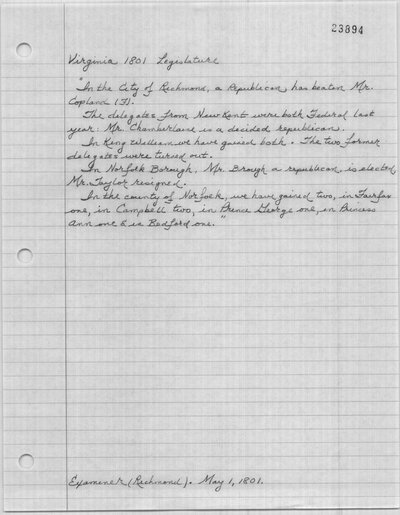 23894
Virginia 1801 Legislature
"In the City of Richmond, a Republican, has beaten Mr.
Copland (F).
The delegates from New Kent were both Federal last
year. Mr. Chamberlaine is a decided republican.
In King William we have gained both. The two former
delegates were turned out.
In Norfolk Borough, Mr. Brough a republican, is elected,
Mr. Taylor resigned.
In the county of Norfolk, we have gained two, in Fairfax
one, in Campbell two, in Prince George one, in Princess
Ann one & in Bedford one."
Examiner (Richmond). May 1, 1801.